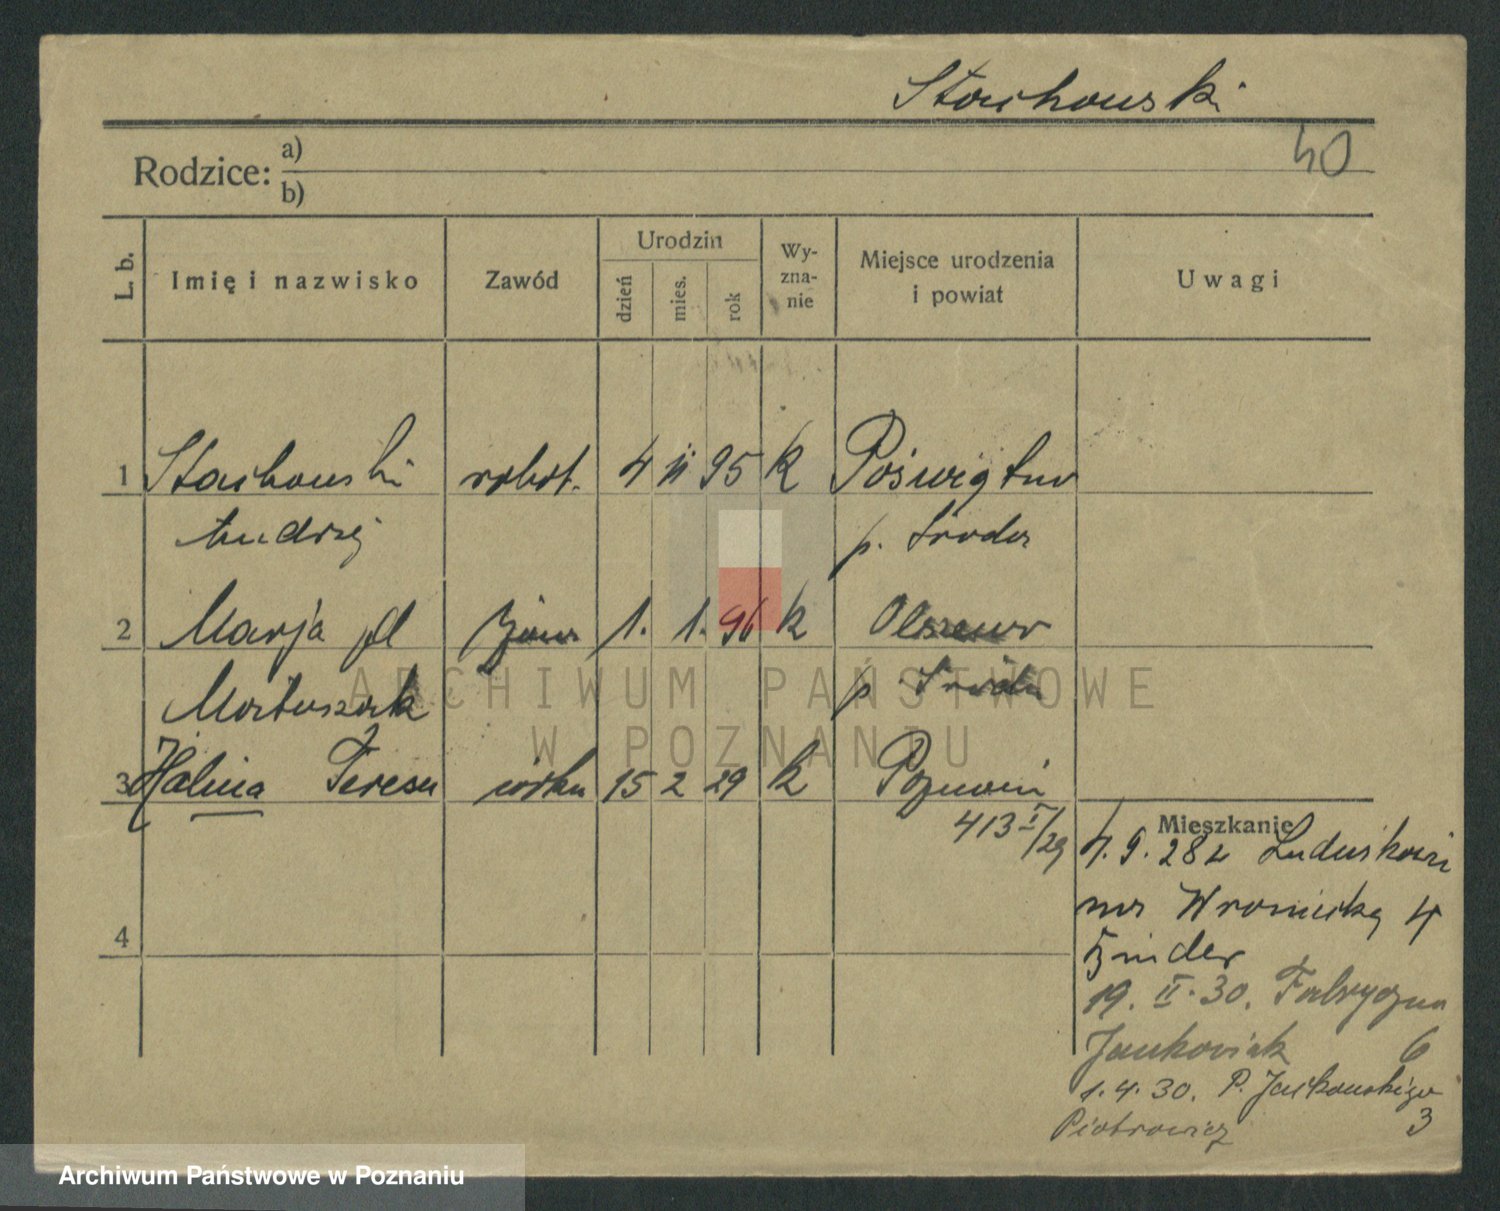 Stachowski
40
Rodzice: a)
b)
L. b.
Imię i nazwisko
Zawód
Urodzin
dzień
mies.
rok
Wy-
zna-
nie
Miejsce urodzenia
i powiat
Uwagi
1 Stachowski robot. 4 11 95 k Pośwигtno
Andrzej p. Środa
2 Marja żona 1. 1. 96 k Olszewo
Matuszak p. Środa
3 Halina Teresa córka 15 2 29 k Poznań
413 I/29
Mieszkanie
4. 9. 28 z
na Wroniecka 4
Binder
4
19. II. 30. Fabryczna
Jankowiak 6
1. 4. 30. P. Jackowskiego
Piotrowicz 3
ARCHIWUM PAŃSTWOWE
W POZNANIU
Archiwum Państwowe w Poznaniu